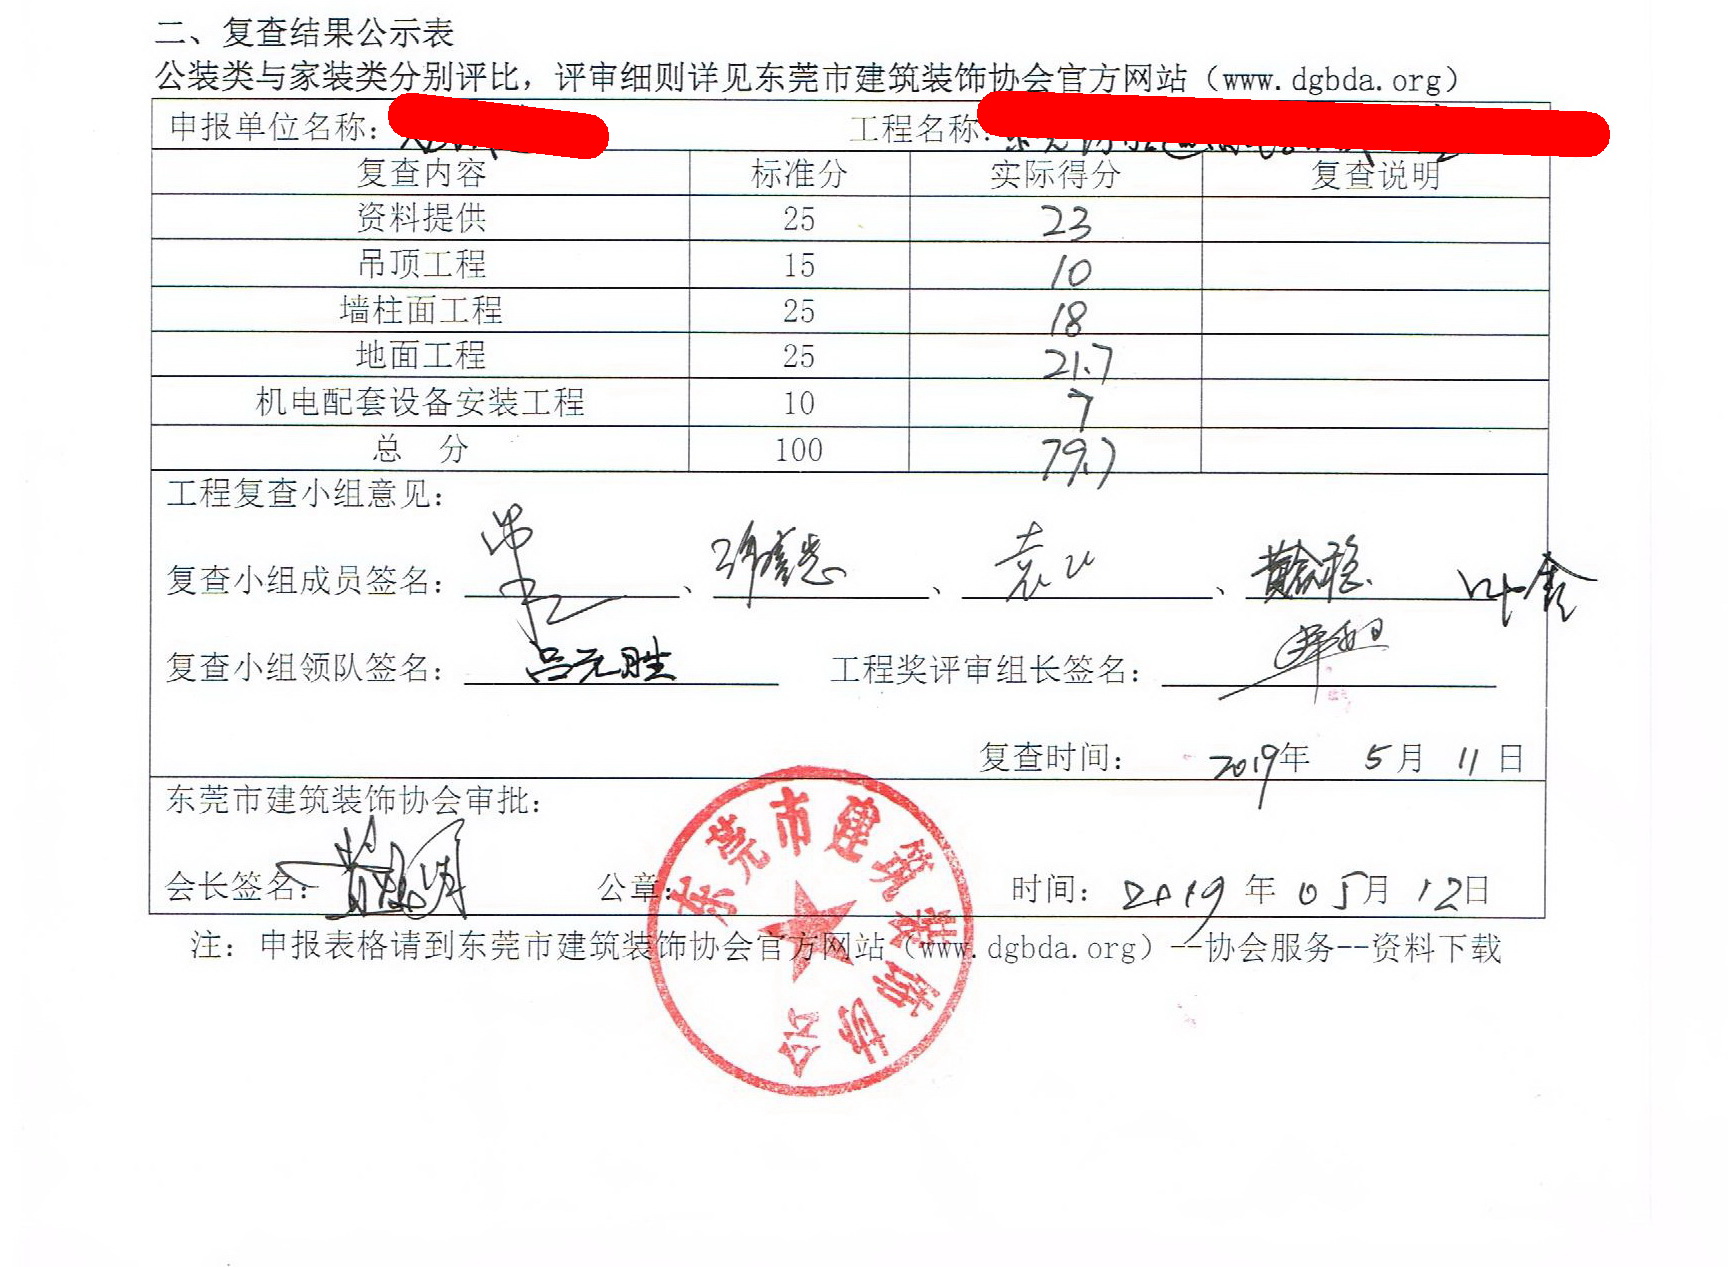 二、复查结果公示表
公装类与家装类分别评比，评审细则详见东莞市建筑装饰协会官方网站（www.dgbda.org）
申报单位名称： 工程名称：
复查内容 标准分 实际得分 复查说明
资料提供 25 23
吊顶工程 15 10
墙柱面工程 25 18
地面工程 25 21.7
机电配套设备安装工程 10 7
总 分 100 79.7
工程复查小组意见：
复查小组成员签名： 、 、 、
复查小组领队签名：吕元胜 工程奖评审组长签名：
复查时间： 2019年 5月 11日
东莞市建筑装饰协会审批：
会长签名： 公章： 时间：2019年05月12日
注：申报表格请到东莞市建筑装饰协会官方网站（www.dgbda.org）--协会服务--资料下载
东莞市建筑装饰协会